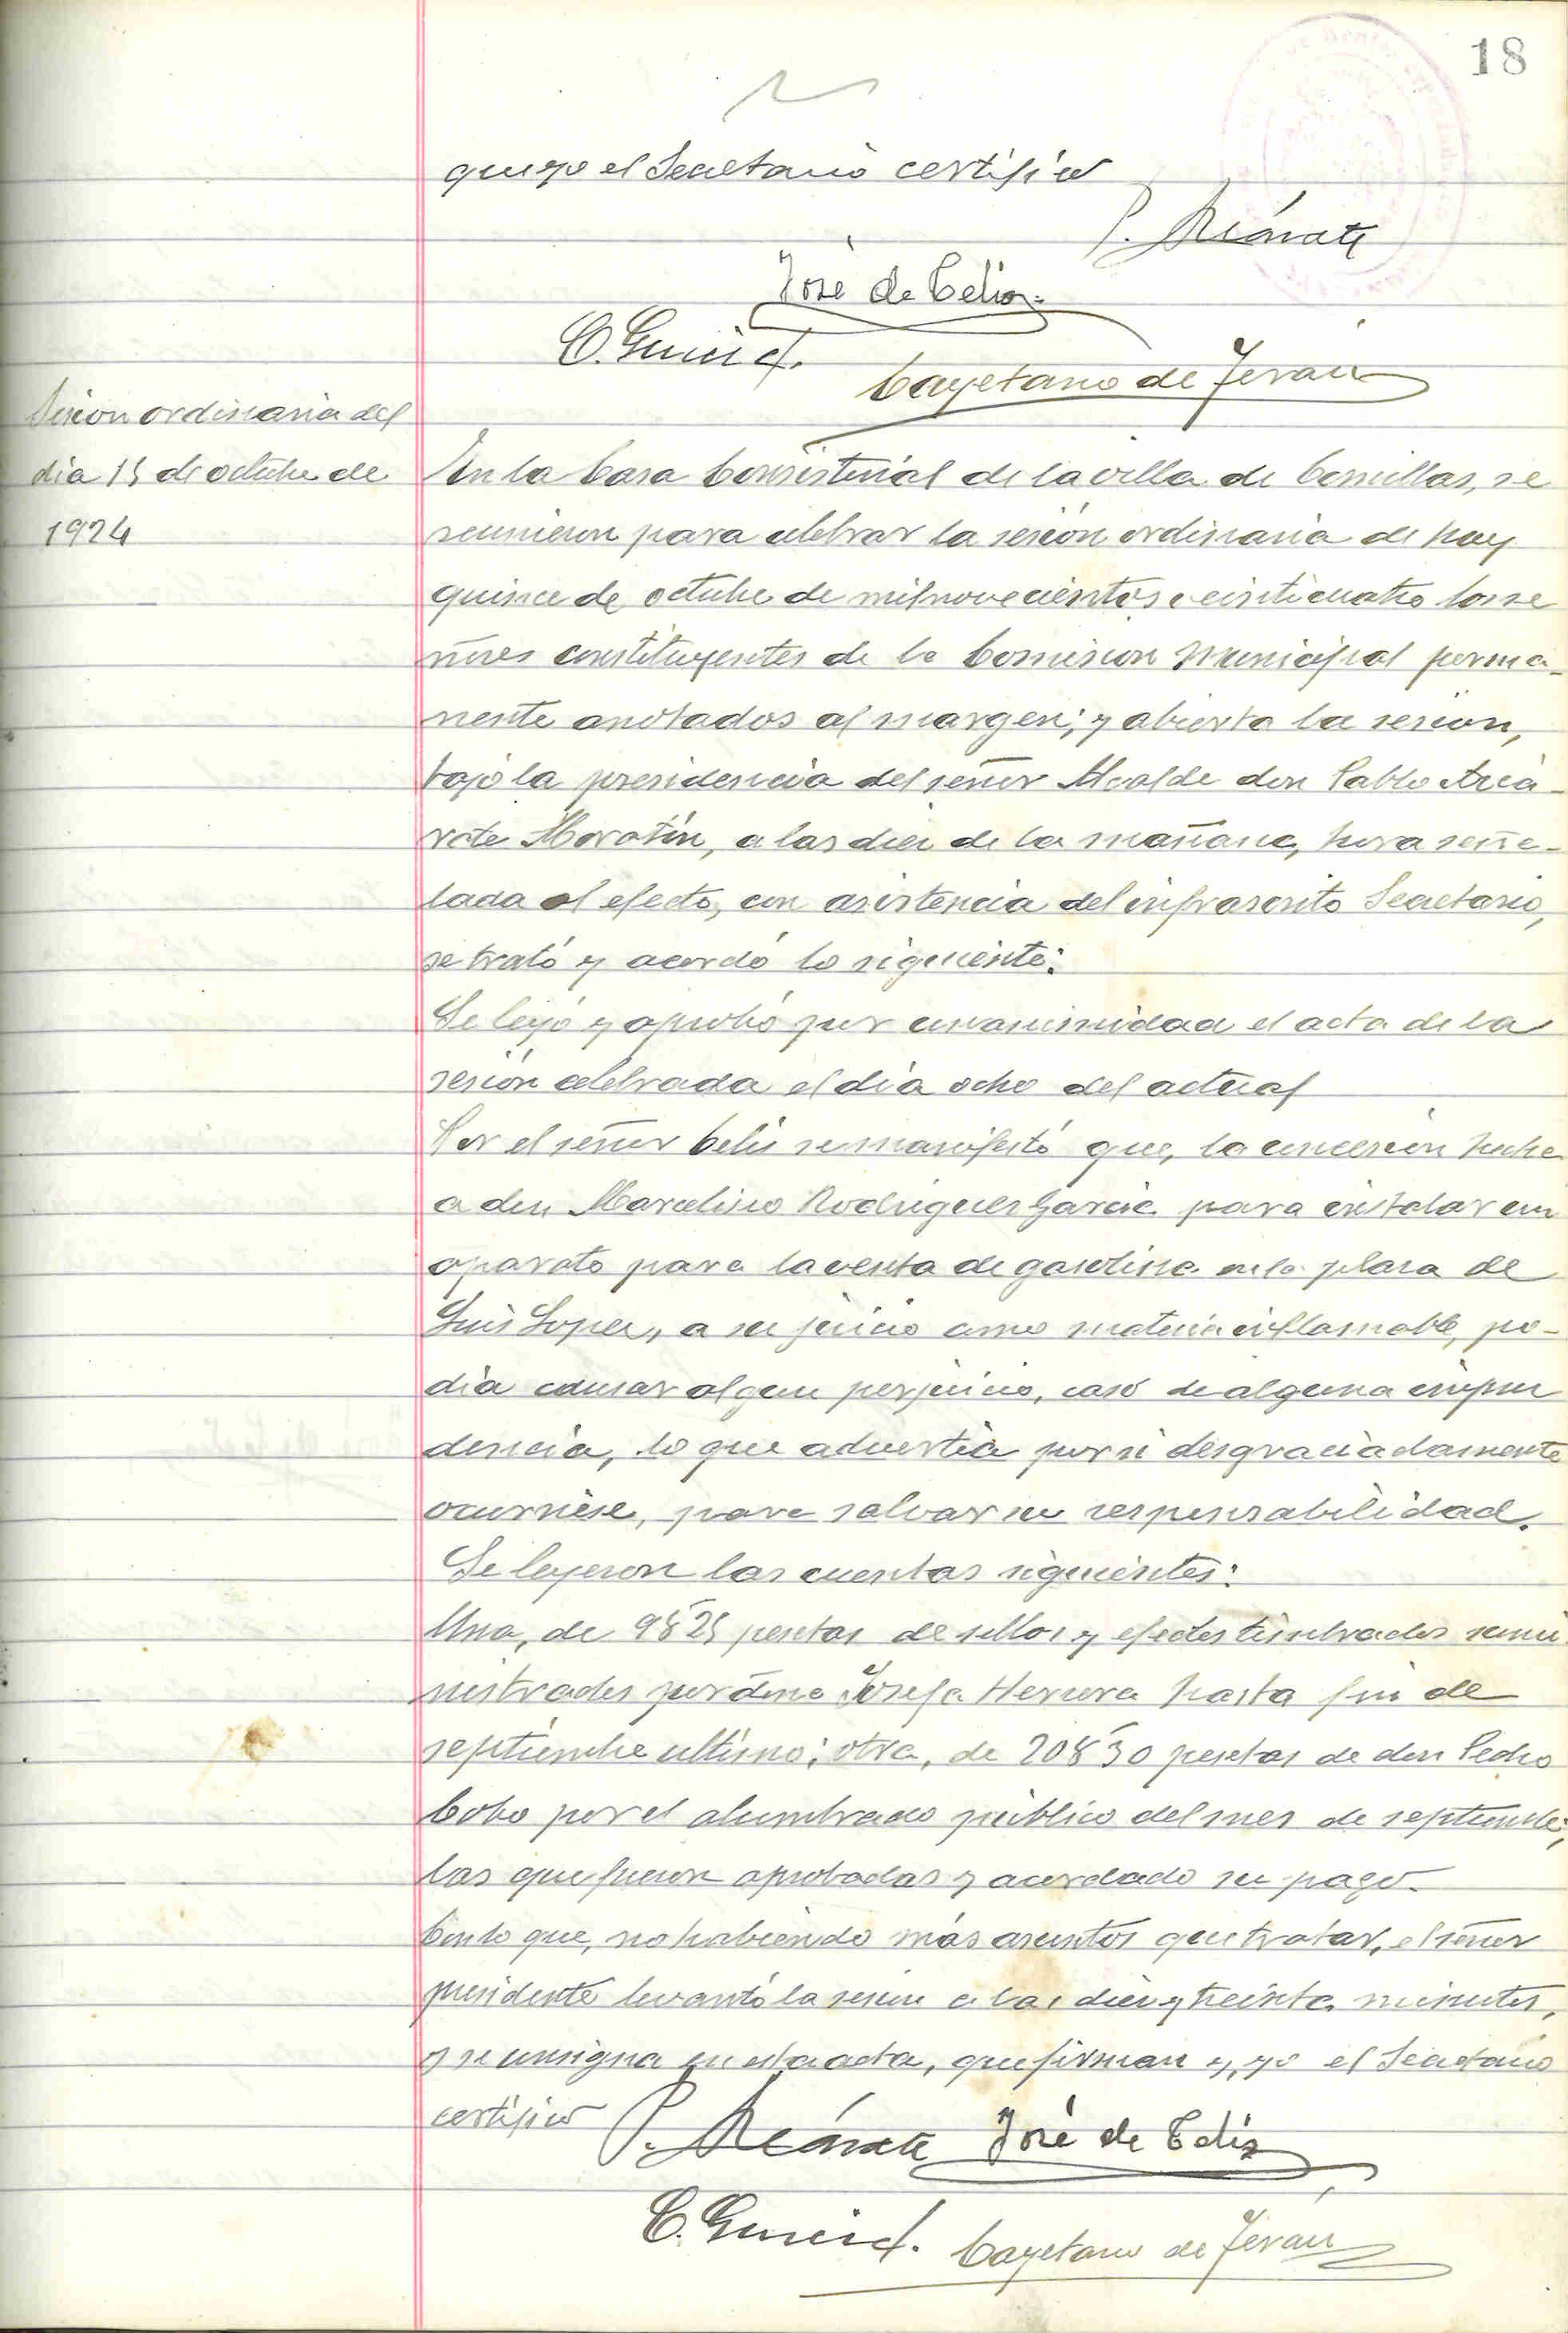 18
que yo el Secretario certifico
P. Azcárate
José de Celis
C. García.
Cayetano de Terán
Sesion ordinaria del
dia 15 de octubre de
1924
En la Casa Consistorial de la villa de Comillas, se
reunieron para celebrar la sesión ordinaria de hoy
quince de octubre de mil novecientos veinticuatro los se
ñores constituyentes de la Comision Municipal perma-
nente anotados al margen; y abierta la sesion,
bajo la presidencia del señor Alcalde don Pablo Azcá-
rate Moratín, a las diez de la mañana, hora seña-
lada al efecto, con asistencia del infrascrito Secretario,
se trató y acordó lo siguiente:
Se leyó y aprobó por unanimidad el acta de la
sesión celebrada el dia ocho del actual
Por el señor Celis se manifestó que, la concesión hecha
a don Marcelino Rodriguez Garcia para instalar un
aparato para la venta de gasolina en la plaza de
Luis Lopez, a su juicio como materia inflamable, po-
dia causar algun perjuicio, caso de alguna impru
dencia, lo que advertia por si desgraciadamente
ocurriese, para salvar su responsabilidad.
Se leyeron las cuentas siguientes:
Una, de 98'25 pesetas de sellos y efectos timbrados sumi
nistrados por doña Josefa Herrera hasta fin de
septiembre ultimo; otra, de 208'50 pesetas de don Pedro
Cobo por el alumbrado público del mes de septiembre;
las que fueron aprobadas y acordado su pago.
Con lo que, no habiendo más asuntos que tratar, el señor
presidente levantó la sesion a las diez y treinta minutos,
y se consigna en esta acta, que firman y, yo el Secretario
certifico
P. Azcárate José de Celis
C. García. Cayetano de Terán